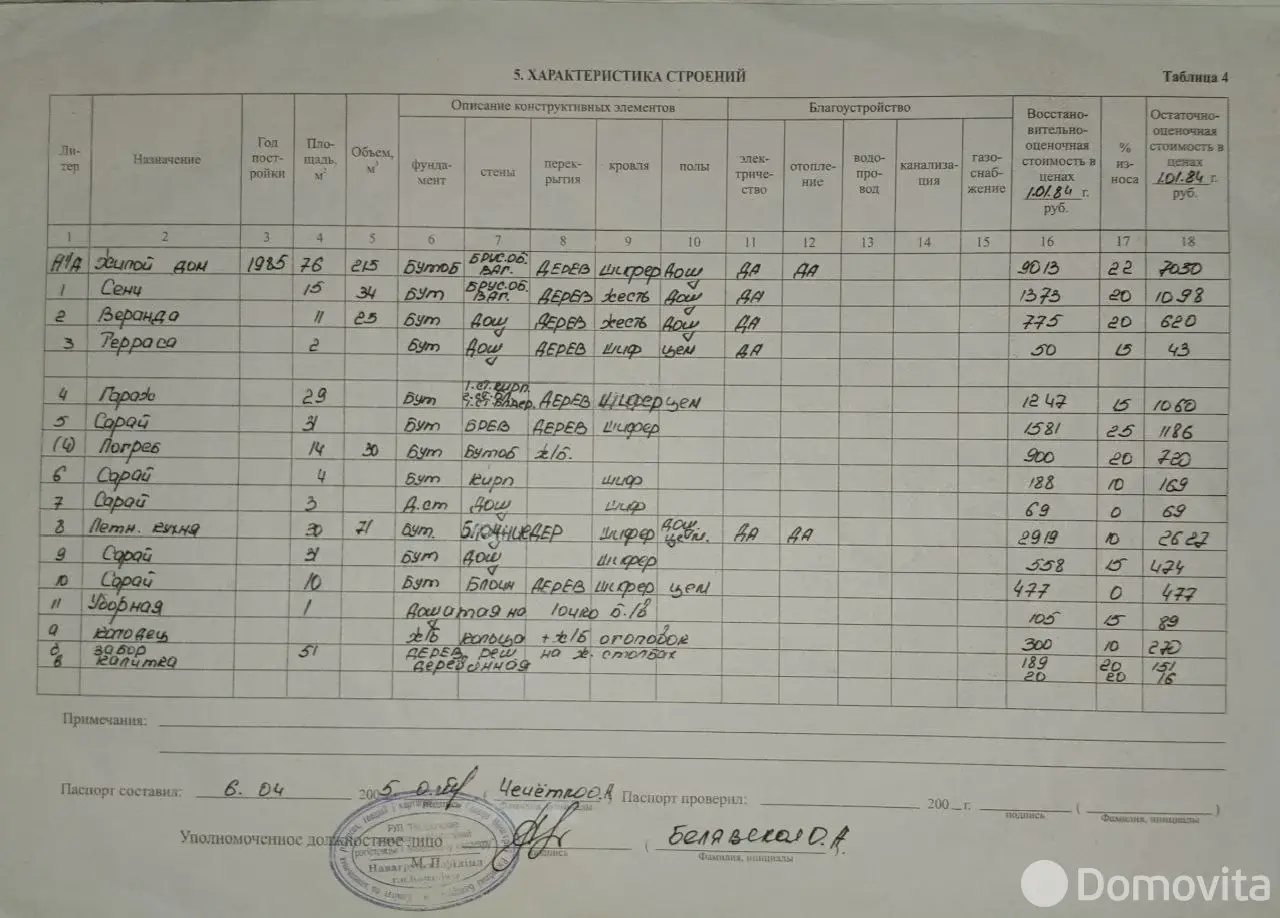 5. ХАРАКТЕРИСТИКА СТРОЕНИЙ
Таблица 4
Ли-тер Назначение Год пост-ройки Пло-щадь, м² Объем, м³ Описание конструктивных элементов Благоустройство Восстано-вительно-оценочная стоимость в ценах 1.01.84 г. руб. % из-носа Остаточно-оценочная стоимость в ценах 1.01.84 г. руб.
фунда-мент стены перек-рытия кровля полы элек-триче-ство отопле-ние водо-про-вод канализа-ция газо-снаб-жение
1 2 3 4 5 6 7 8 9 10 11 12 13 14 15 16 17 18
Жилой дом 1985 76 215 Бутоб БРУС.ОБ. ВАГ. ДЕРЕВ шифер Дощ ДА ДА 9013 22 7030
1 Сени 15 34 Бут БРУС.ОБ. ВАГ. ДЕРЕВ жесть Дощ ДА 1373 20 1098
2 Веранда 11 25 Бут Дощ ДЕРЕВ жесть Дощ ДА 775 20 620
3 Терраса 2 Бут Дощ ДЕРЕВ шиф цем ДА 50 15 43
4 Гараж 29 Бут 1.ст.кирп. ДЕРЕВ шифер цем 1247 15 1060
5 Сарай 31 Бут БРЕВ ДЕРЕВ шифер 1581 25 1186
(4) Погреб 14 30 Бут Бутоб ж/б. 900 20 720
6 Сарай 4 Бут кирп шиф 188 10 169
7 Сарай 3 Д.ст Дощ шиф 69 0 69
8 Летн. кухня 30 71 Бут. Блочные ДЕР шифер Дощ цем. ДА ДА 2919 10 2627
9 Сарай 31 Бут Дощ шифер 558 15 474
10 Сарай 10 Бут Блочн ДЕРЕВ шифер цем 477 0 477
11 Уборная 1 Дощатая на 1 очко 105 15 89
а колодец ж/б кольца + ж/б оголовок 300 10 270
б забор 51 ДЕРЕВ. реш на ж. столбах 189 20 151
в калитка деревянная 20 20 16
Примечания:
Паспорт составил: 6. 04 2005. ( Чечётко О.А Паспорт проверил: 200 г. ( )
подпись Фамилия, инициалы
Уполномоченное должностное лицо ( Белявская О.А.
М. П. подпись Фамилия, инициалы
Domovita